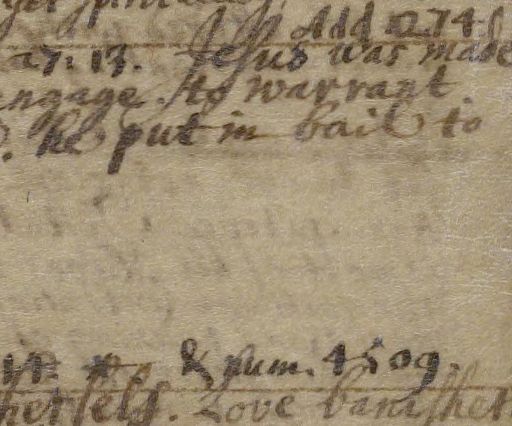 Add 1274.
27. 13. Jesus was made
engage. to warrant
he put in bail to
& num. 4509.
herself. Love banishet